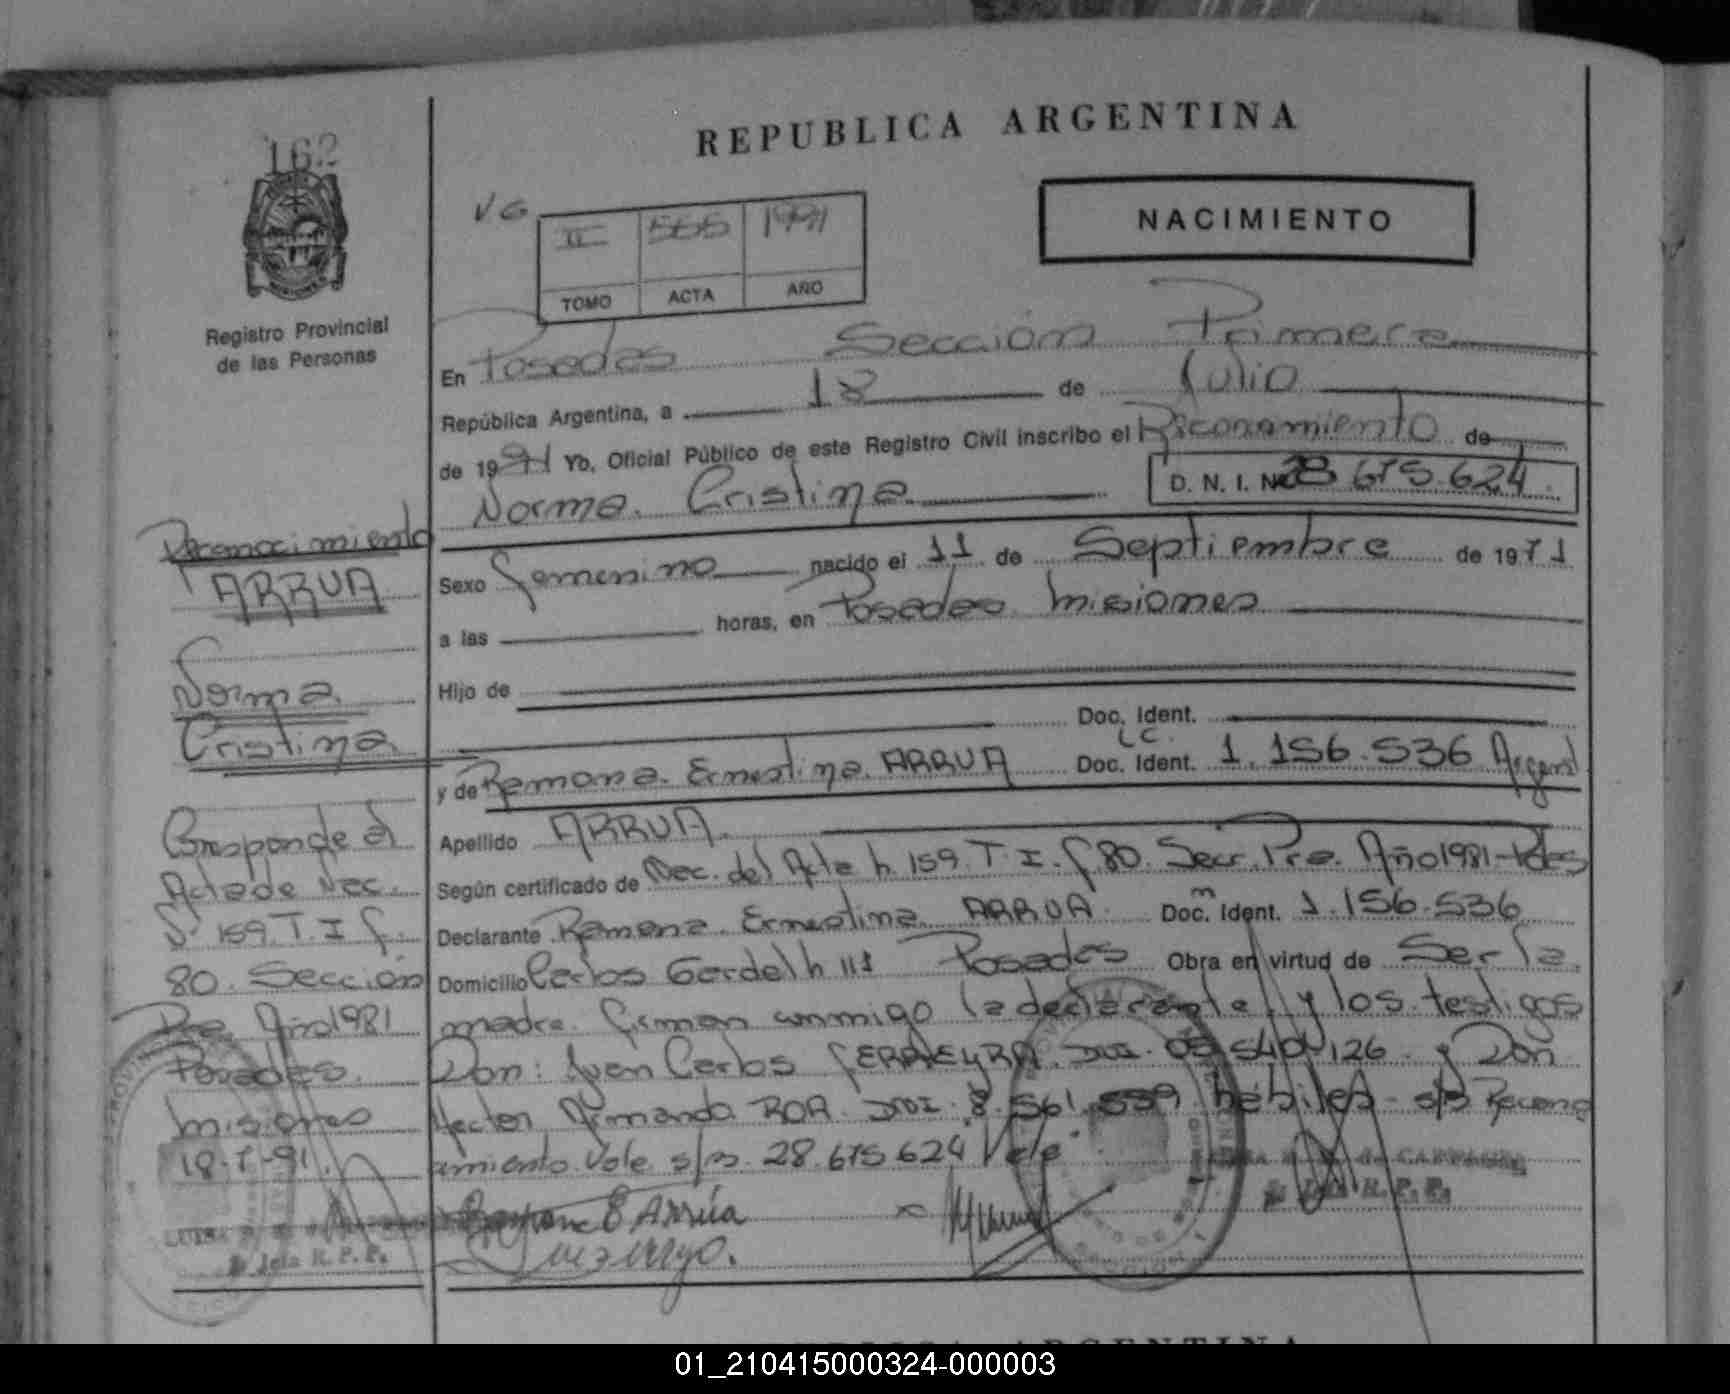 162
REPUBLICA ARGENTINA
NACIMIENTO
VG
II 555 1991
TOMO ACTA AÑO
Registro Provincial
de las Personas
En Posadas Sección Primera
República Argentina, a 18 de Julio
de 1991 Yo, Oficial Público de este Registro Civil inscribo el Reconomiento de
Norma Cristina D. N. I. Nº 28.675.624
Sexo femenino nacido el 11 de Septiembre de 1971
a las horas, en Posadas Misiones
Hijo de
Doc. Ident.
y de Ramona Ernestina ARRUA L C. Doc. Ident. 1.156.536 Argent
Apellido ARRUA
Según certificado de Nac. del Acta h 159. T. I. f. 80. Secc. Pra. Año 1981 - Pdas
Declarante Ramona Ernestina ARRUA Doc. Ident. m 1.156.536
Domicilio Carlos Gardel h 111 Posadas Obra en virtud de Ser la
madre. firman conmigo la declarante y los testigos
Don: Juan Carlos FERREYRA. DNI. 05.540.126. y Don
Hector Armando ROA. DNI. 8.561.559 hábiles - s/b Recono
amiento Vale s/b. 28.675.624 Vale
Ramona E Arrúa
Reconocimiento
ARRUA
Norma
Cristina
Corresponde al
Acta de Nac.
Nº 159. T. I f.
80. Sección
Pra Año 1981
Posadas.
Misiones
18-7-91.
Jefa R. P. P.
Jefa R. P. P.
REPUBLICA ARGENTINA
01_210415000324-000003